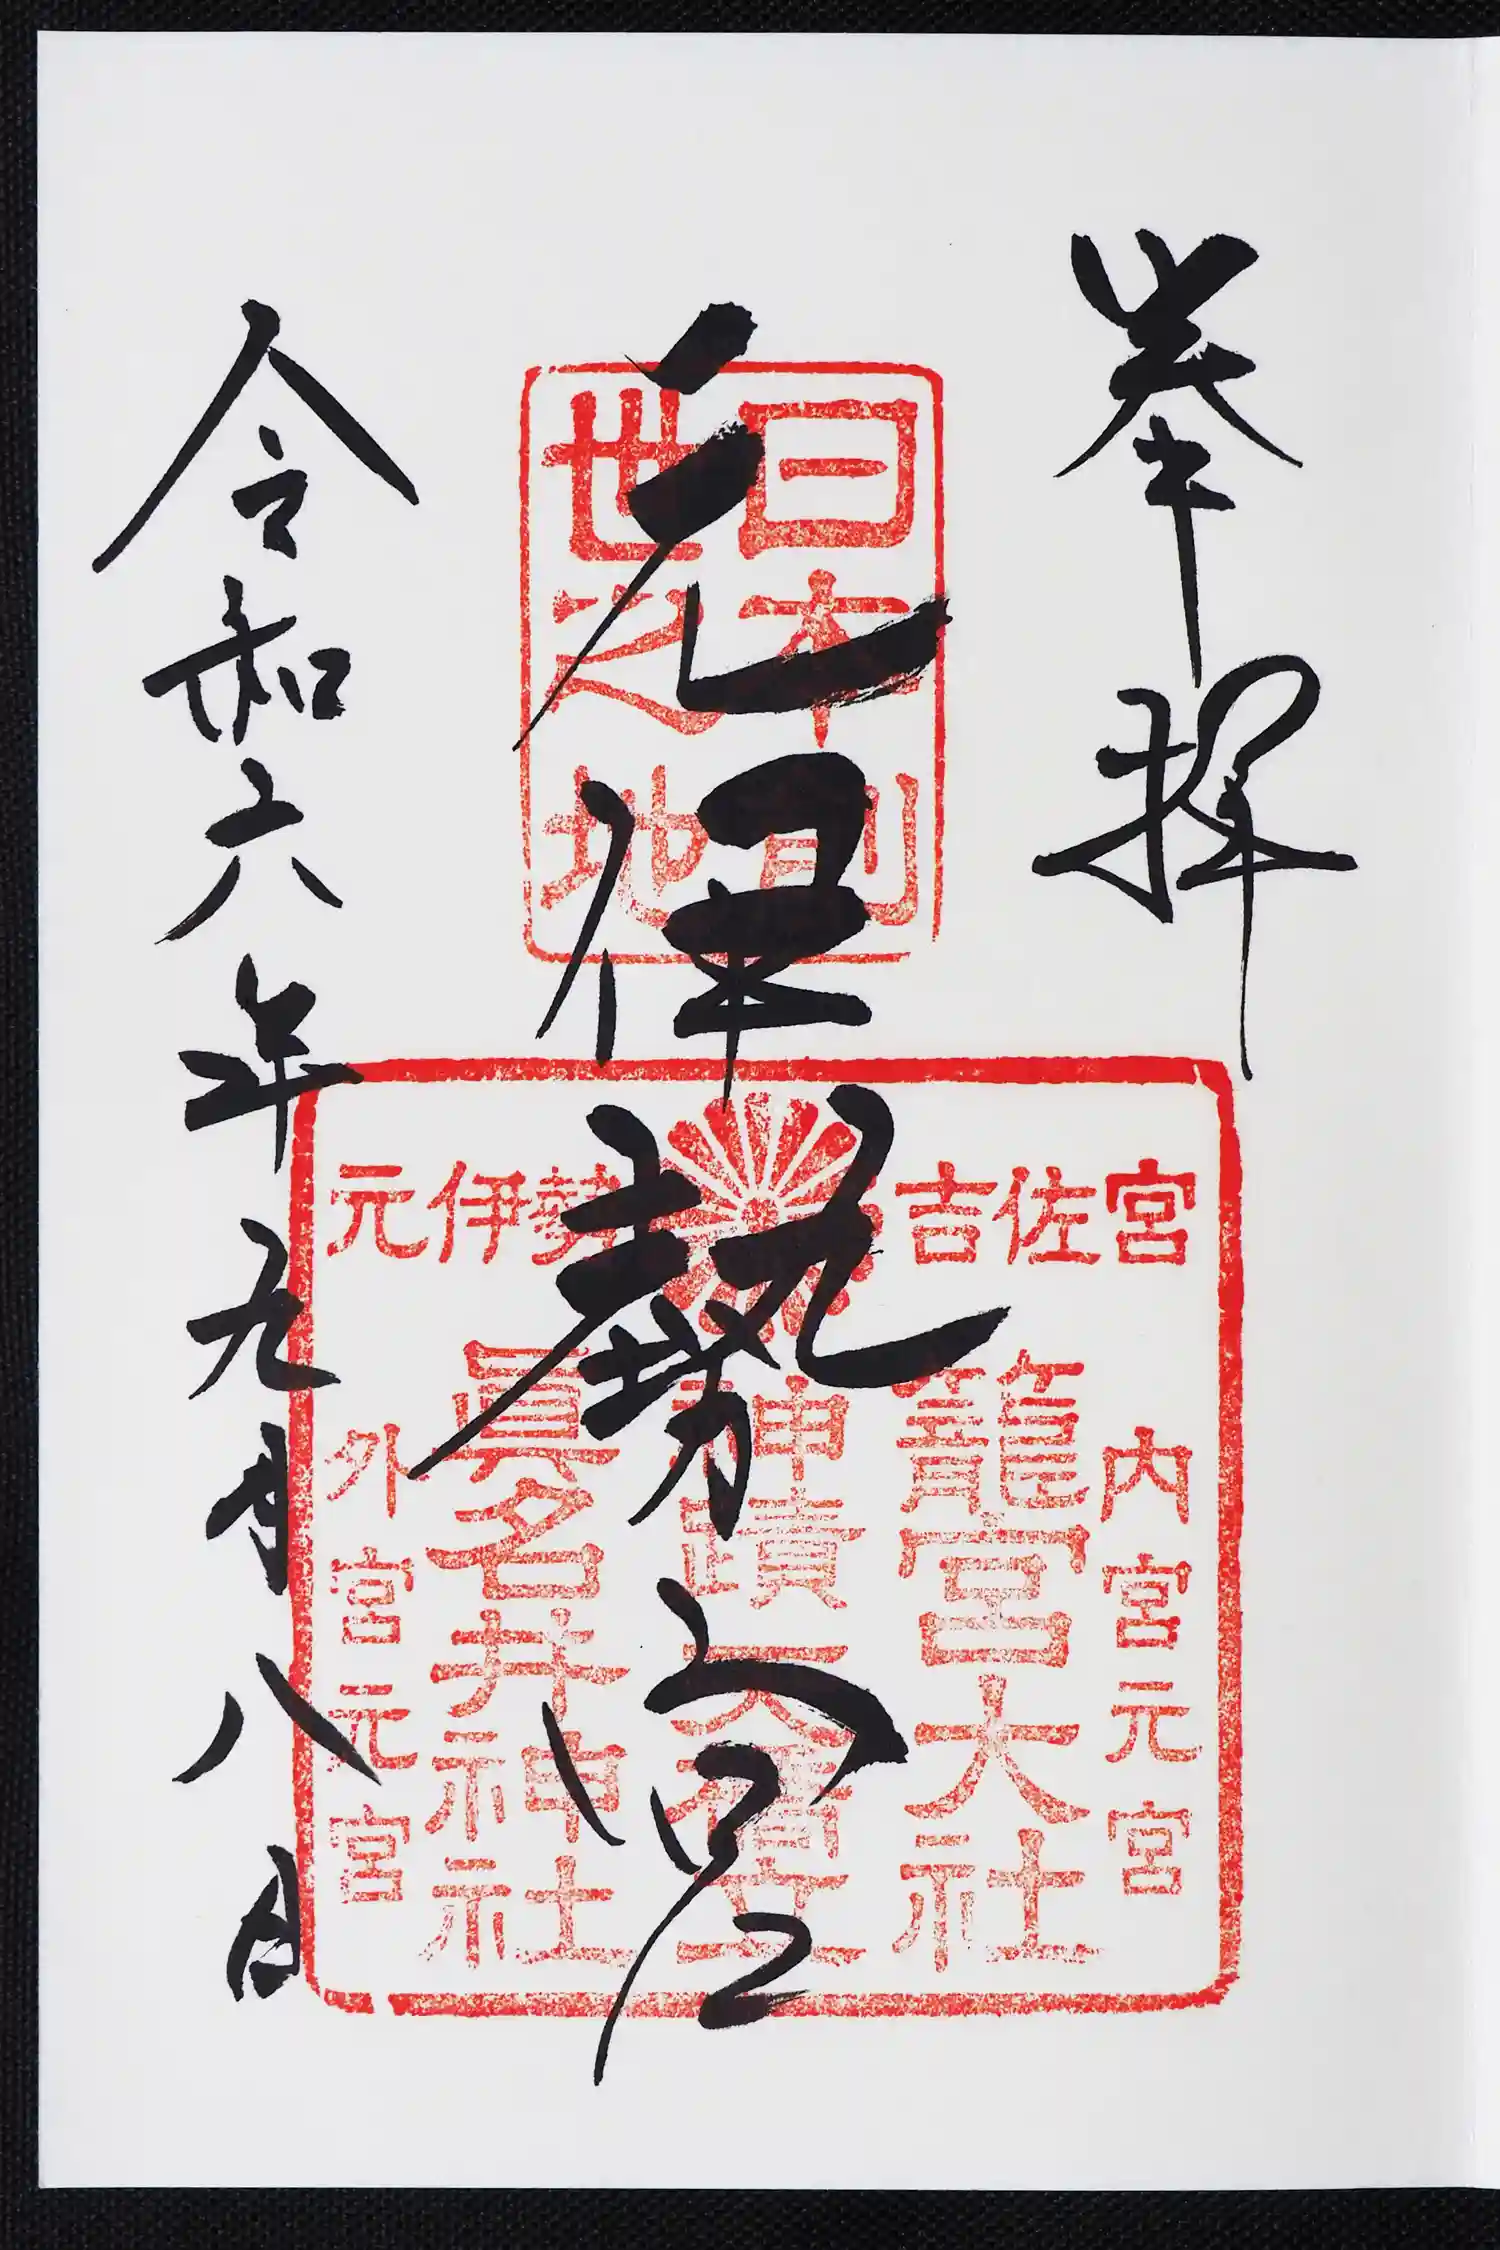 奉拝
元伊勢宮
令和六年九月八日
日本創
世之地
吉佐宮
元伊勢
内宮元宮
籠宮大社
神蹟
眞名井神社
外宮元宮